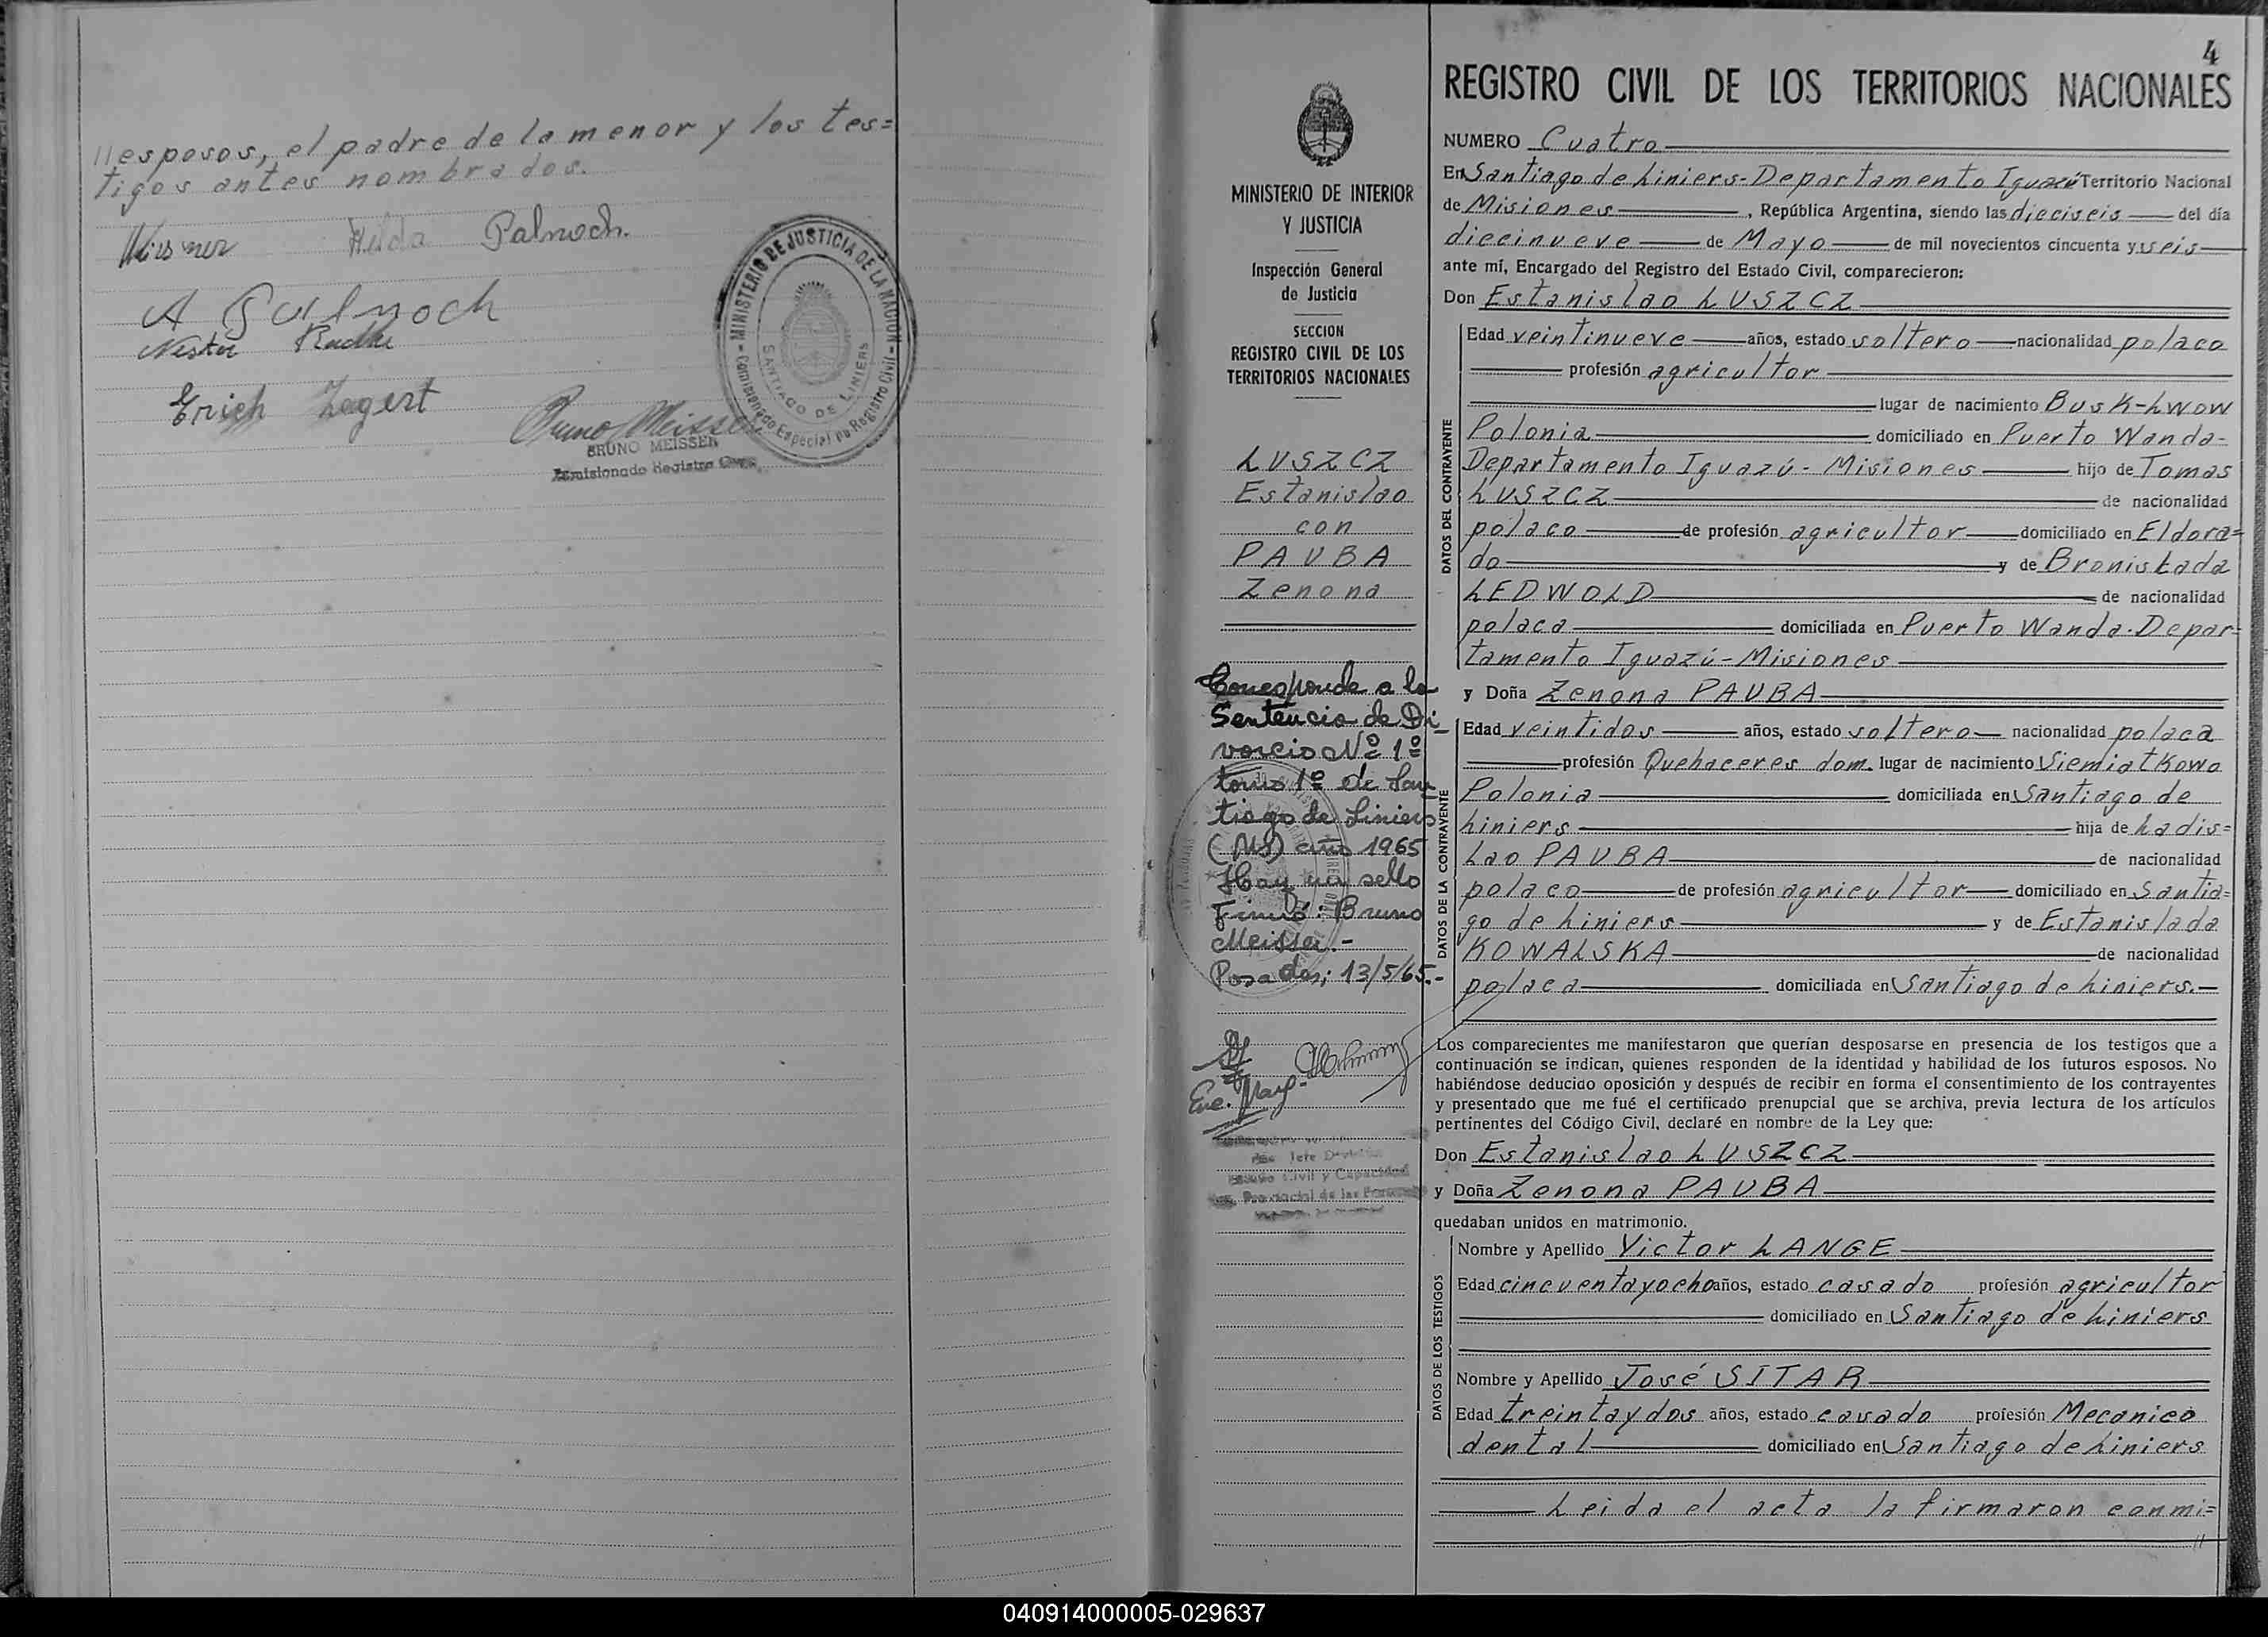 //esposos, el padre de la menor y los tes=
tigos antes nombrados.
Hilda Palnoch.
A Palnoch
Nestor
Erich Zegert
Bruno Meisser
BRUNO MEISSER
Comisionado Registro Civil
MINISTERIO DE JUSTICIA DE LA NACION - Comisionado Especial de Registro Civil -
SANTIAGO DE LINIERS
MINISTERIO DE INTERIOR
Y JUSTICIA
Inspección General
de Justicia
SECCION
REGISTRO CIVIL DE LOS
TERRITORIOS NACIONALES
LUSZCZ
Estanislao
con
PAUBA
Zenona
Corresponde a la
Sentencia de Di-
vorcio Nº 1º
tomo 1º de San
tiago de Liniers
(Ms) año 1965
Hay un sello
Firmó: Bruno
Meisser.-
Posadas; 13/5/65.-
4
REGISTRO CIVIL DE LOS TERRITORIOS NACIONALES
NUMERO Cuatro
En Santiago de Liniers-Departamento Iguazú Territorio Nacional
de Misiones, República Argentina, siendo las dieciseis del día
diecinueve de Mayo de mil novecientos cincuenta y seis
ante mí, Encargado del Registro del Estado Civil, comparecieron:
Don Estanislao LUSZCZ
DATOS DEL CONTRAYENTE
Edad veintinueve años, estado soltero nacionalidad polaco
profesión agricultor
lugar de nacimiento Busk-Lwow
Polonia domiciliado en Puerto Wanda-
Departamento Iguazú-Misiones hijo de Tomas
LUSZCZ de nacionalidad
polaco de profesión agricultor domiciliado en Eldora=
do y de Bronislada
LEDWOLD de nacionalidad
polaca domiciliada en Puerto Wanda-Depar=
tamento Iguazú-Misiones
y Doña Zenona PAUBA
DATOS DE LA CONTRAYENTE
Edad veintidos años, estado soltero nacionalidad polaca
profesión Quehaceres dom. lugar de nacimiento Siemiatkowo
Polonia domiciliada en Santiago de
Liniers hija de Ladis=
lao PAUBA de nacionalidad
polaco de profesión agricultor domiciliado en Santia=
go de Liniers y de Estanislada
KOWALSKA de nacionalidad
polaca domiciliada en Santiago de Liniers.-
Los comparecientes me manifestaron que querían desposarse en presencia de los testigos que a
continuación se indican, quienes responden de la identidad y habilidad de los futuros esposos. No
habiéndose deducido oposición y después de recibir en forma el consentimiento de los contrayentes
y presentado que me fué el certificado prenupcial que se archiva, previa lectura de los artículos
pertinentes del Código Civil, declaré en nombre de la Ley que:
Don Estanislao LUSZCZ
y Doña Zenona PAUBA
quedaban unidos en matrimonio.
DATOS DE LOS TESTIGOS
Nombre y Apellido Victor LANGE
Edad cincuentayocho años, estado casado profesión agricultor
domiciliado en Santiago de Liniers
Nombre y Apellido José SITAR
Edad treintaydos años, estado casado profesión Mecanico
dental domiciliado en Santiago de Liniers
Leida el acta la firmaron conmi=
//
040914000005-029637